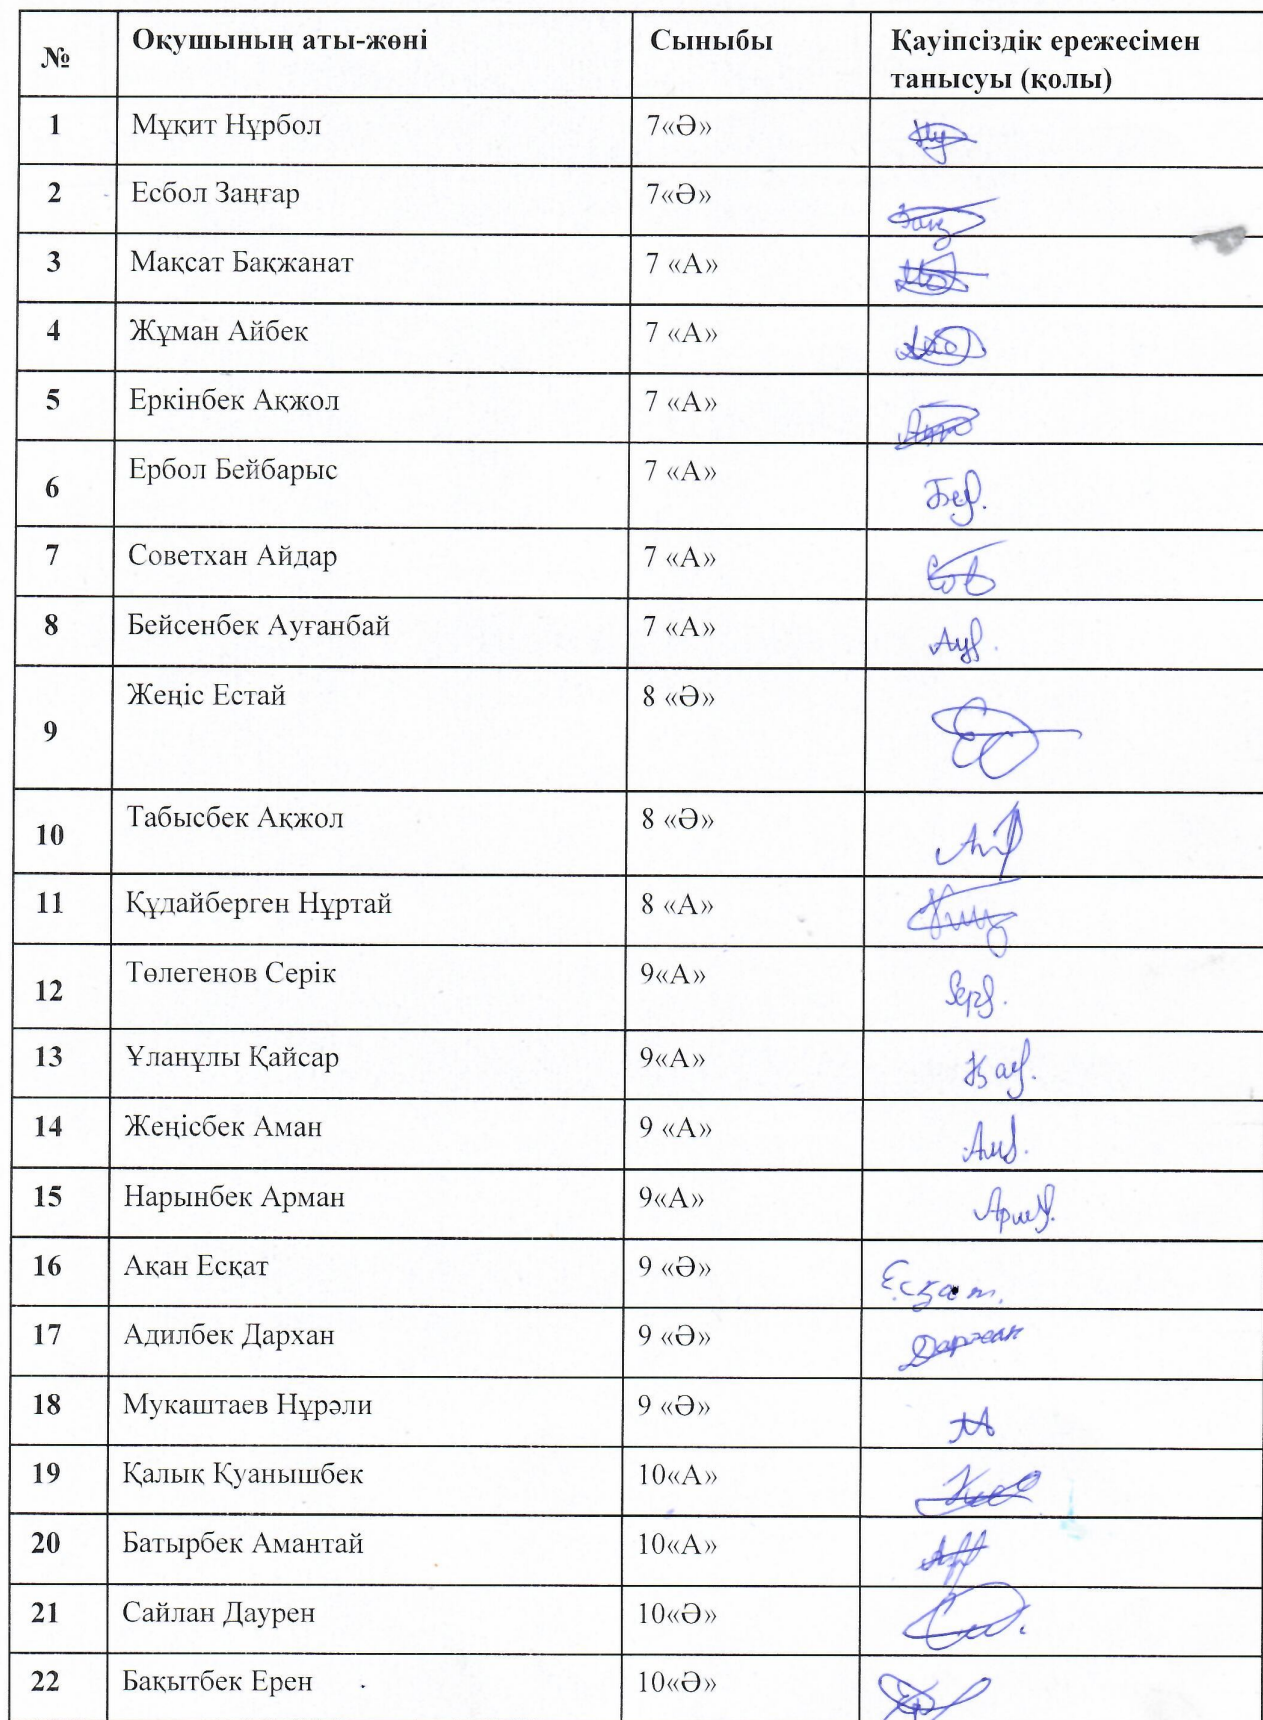 № Оқушының аты-жөні Сыныбы Қауіпсіздік ережесімен
танысуы (қолы)
1 Мұқит Нұрбол 7«Ә»
2 Есбол Заңғар 7«Ә»
3 Мақсат Бақжанат 7 «А»
4 Жұман Айбек 7 «А»
5 Еркінбек Ақжол 7 «А»
6 Ербол Бейбарыс 7 «А»
7 Советхан Айдар 7 «А»
8 Бейсенбек Ауғанбай 7 «А»
9 Жеңіс Естай 8 «Ә»
10 Табысбек Ақжол 8 «Ә»
11 Құдайберген Нұртай 8 «А»
12 Төлегенов Серік 9«А»
13 Ұланұлы Қайсар 9«А»
14 Жеңісбек Аман 9 «А»
15 Нарынбек Арман 9«А»
16 Ақан Есқат 9 «Ә» Есқат.
17 Адилбек Дархан 9 «Ә» Дархан
18 Мукаштаев Нұрәли 9 «Ә»
19 Қалық Қуанышбек 10«А»
20 Батырбек Амантай 10«А»
21 Сайлан Даурен 10«Ә»
22 Бақытбек Ерен 10«Ә»